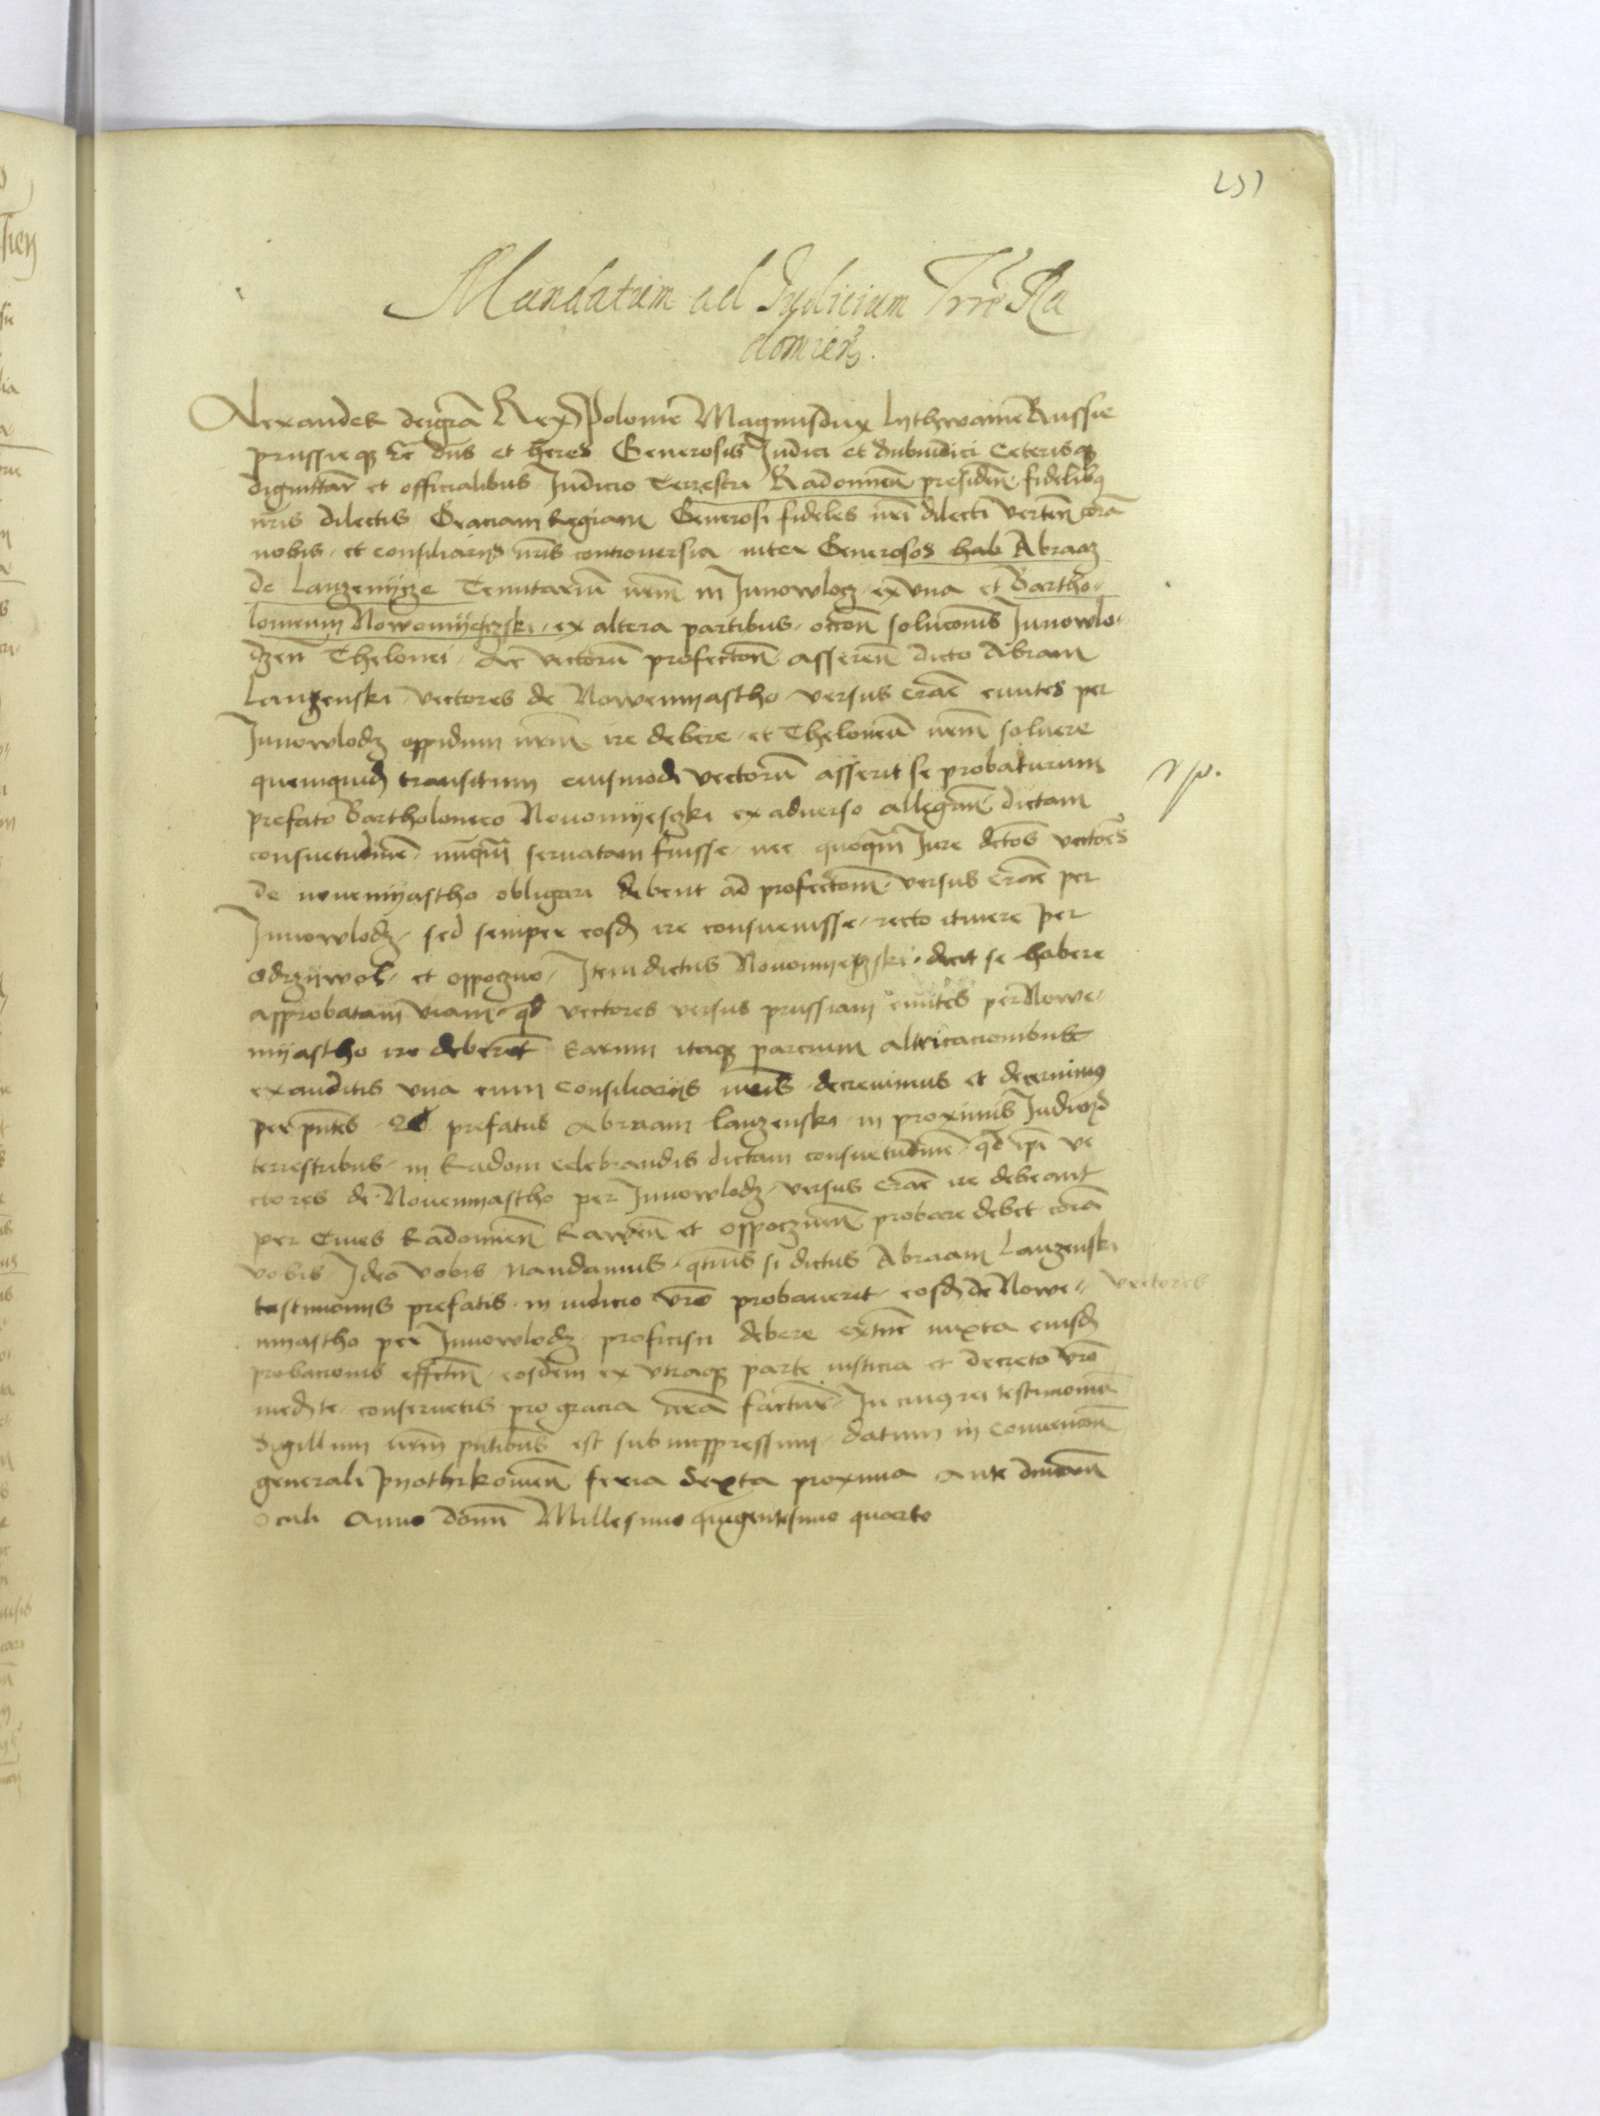 251
Mandatum ad Judicium Trre Ra
domien.
Alexander dei grã Rex Polonie Magnus dux Lythwanie Russie
prussieq; &c dns et heres Generosis Judici et Subiudici Ceterisq;
dignittar et officialibus Judicio Terrestri Radomieñ presideñ fidelibq
nris dilectis Graciam Regiam Generosi fideles nri dilecti verteñ corã
nobis et consiliarijs nris controuersia inter Generosos Abraam
de Lanzenijcze Tenutariũ nrm in Junowlocz ex vna et Bartho-
lomeum Nowomijesczski ex altera partibus occoñ soluconis Junowlo-
dzeñ Thelonei Ac vectorũ profectoñ assereñ dicto Abram
Lanzenski vectores de Nowemyastho versus euntes per
Junowlodz oppidum nrm ire debere et Theloneũ nrm soluere
quemquid transitum eiusmodi vectorũ asserit se probaturum
prefato Bartholomeo Nouomijesczki ex aduerso allegañ dictam
consuetudinẽ nũq̃m seruatam fuisse nec quoq̃m Jure dctos vectores
de nouemijastho obligari debent ad profectoñ versus per
Junowlodz sed semper eosd ire consueuisse recto itinere per
Odrzijwol et oppoczno Item dictus Nouomijesczski dicit se habere
approbatam viam qd vectores versus prussiam euntes per Nowe-
mijastho ire deberet Earum itaq; parcium altricacionibus
exauditis vna cum Consiliarijs nris decreuimus et decernimus
per pntes Qd prefatus Abraam lanzenski in proximis Judicijs
terrestribus in Radom celebrandis dictam consuetudinẽ qd ipi ve
ctores de Nouemijastho per Junowlodz versus ire debeant
per Ciues Radomieñ Raweñ et oppoczneñ probare debet corã
vobis Ideo vobis mandamus qtus si dictus Abraam Lanzenski
testimonijs prefatis in iudicio vro probauerit eosd de Nowe- vectores
mijastho per Junowlodz proficisci debere extunc iuxta eiusd
probacionis effctm eosdem ex vtraq; parte iusticia et decreto vro
medte conseruetis pro gracia nra factur In cuius rei testimoniũ
Sigillum nrm pntibus est subimppressum datum in Conuencoñ
generali Pyothrkowieñ feria Sexta proxima ante dnicam
Oculi Anno domi Millesimo quigentesimo quarto